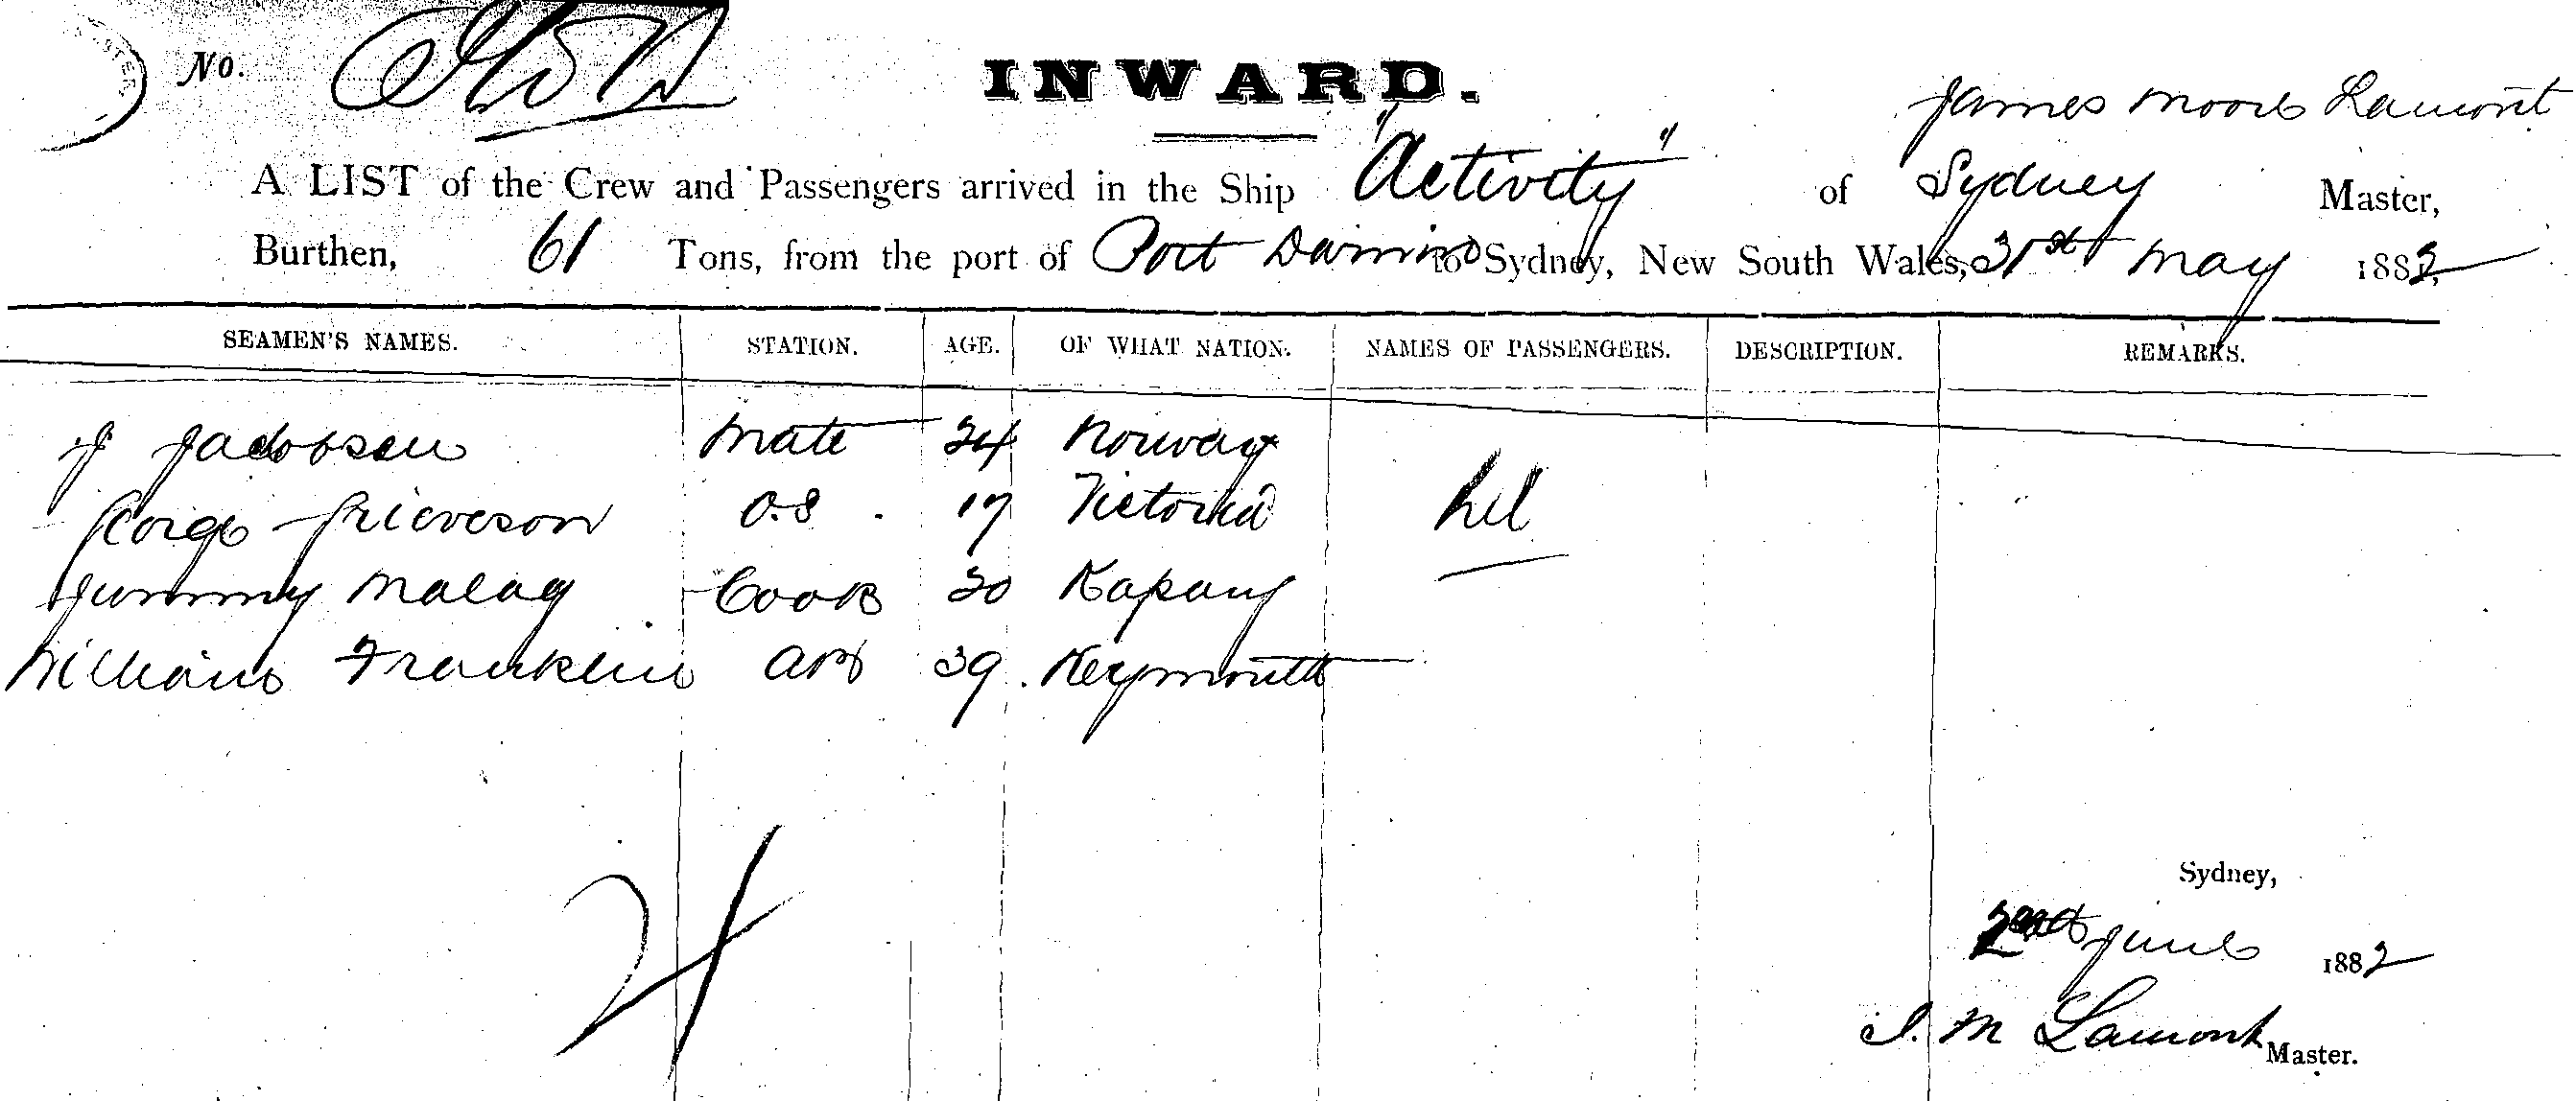 No.
INWARD.
James Moore Lamont
A LIST of the Crew and Passengers arrived in the Ship "Activity" of Sydney Master,
Burthen, 61 Tons, from the port of Port Darwin to Sydney, New South Wales, 31st May 1882
SEAMEN'S NAMES. STATION. AGE. OF WHAT NATION. NAMES OF PASSENGERS. DESCRIPTION. REMARKS.
J Jacobsen Mate 24 Norway
George Grieveson O.S. 17 Victoria Nil
Jimmy Malay Cook 30 Kapang
William Franklin AB 39 Weymouth
Sydney,
2nd June 1882
J. M Lamont Master.